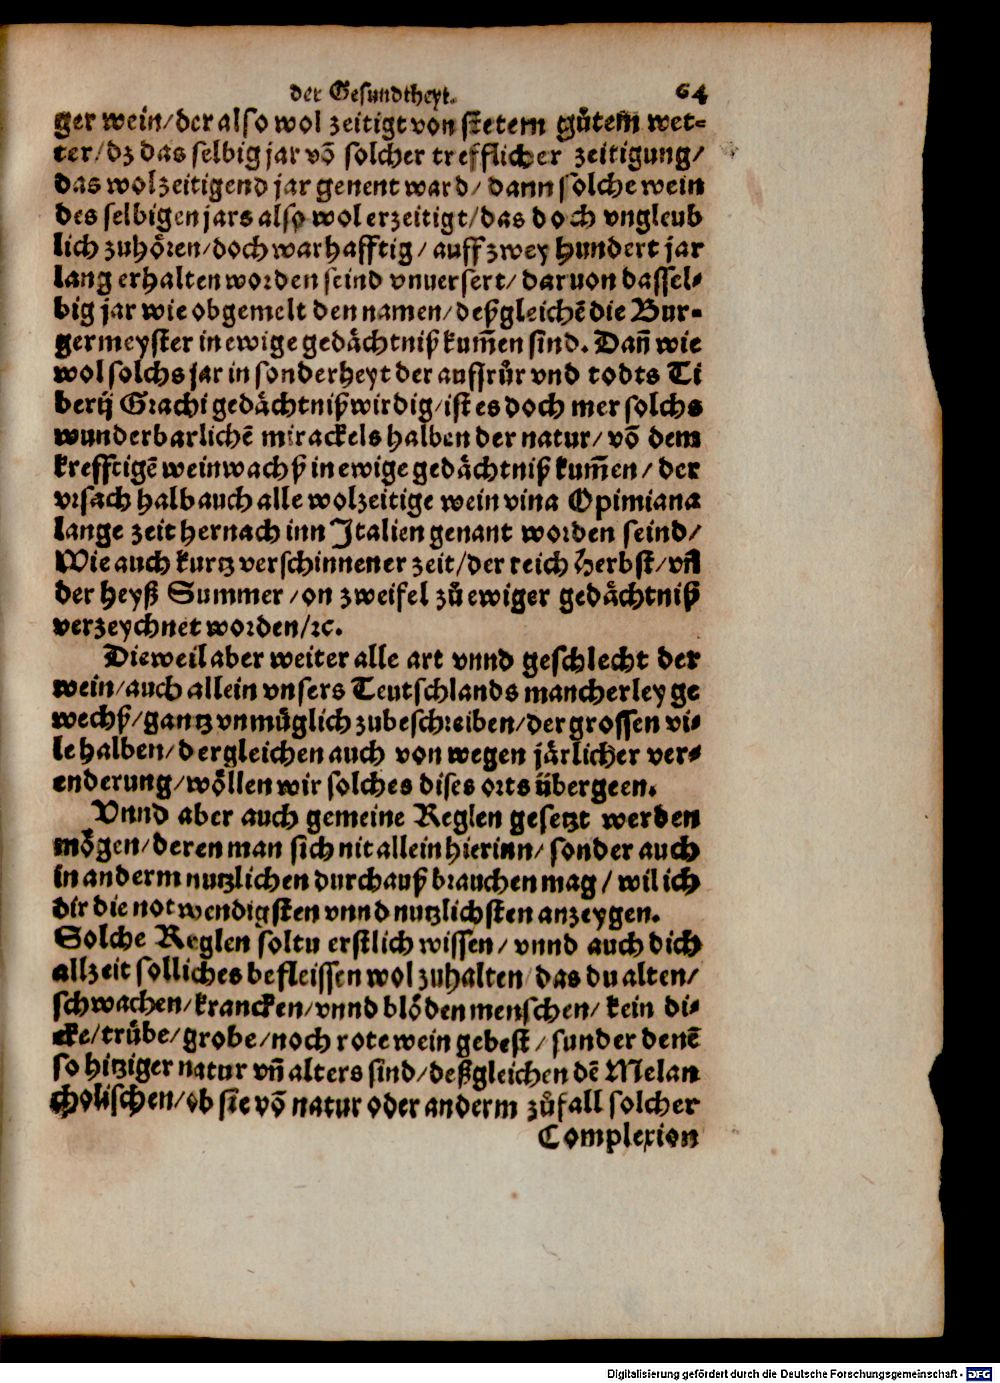 der Gesundtheyt. 64
ger wein/der also wol zeitigt von stetem gůtem wet-
ter/dz das selbig jar võ solcher trefflicher zeitigung/
das wolzeitigend jar genent ward/dann solche wein
des selbigen jars also wol erzeitigt/das doch vngleub
lich zuhören/doch warhafftig/auff zwey hundert jar
lang erhalten worden seind vnuersert/daruon dassel-
big jar wie obgemelt den namen/deßgleichẽ die Bur-
germeyster in ewige gedächtniß kum̃en sind. Dañ wie
wol solchs jar in sonderheyt der auffrůr vnd todts Ti
berij Grachi gedächtnißwirdig/ist es doch mer solchs
wunderbarlichẽ mirackels halben der natur/võ dem
krefftigẽ weinwachß in ewige gedächtniß kum̃en/der
vrsach halb auch alle wolzeitige wein vina Opimiana
lange zeit hernach inn Italien genant worden seind/
Wie auch kurtz verschinnener zeit/der reich Herbst/vñ
der heyß Summer/on zweifel zů ewiger gedächtniß
verzeychnet worden/ꝛc.
Dieweil aber weiter alle art vnnd geschlecht der
wein/auch allein vnsers Teutschlands mancherley ge
wechß/gantz vnmüglich zubeschreiben/der grossen vi-
le halben/dergleichen auch von wegen järlicher ver-
enderung/wöllen wir solches dises orts übergeen.
Vnnd aber auch gemeine Reglen gesetzt werden
mögen/deren man sich nit allein hierinn/sonder auch
in anderm nutzlichen durchauß brauchen mag/wil ich
dir die notwendigsten vnnd nutzlichsten anzeygen.
Solche Reglen soltu erstlich wissen/vnnd auch dich
allzeit solliches befleissen wol zuhalten/das du alten/
schwachen/krancken/vnnd blöden menschen/kein di-
cke/trübe/grobe/noch rote wein gebest/sunder denẽ
so hitziger natur vñ alters sind/deßgleichen dẽ Melan
cholischen/ob sie võ natur oder anderm zůfall solcher
Complexion
Digitalisierung gefördert durch die Deutsche Forschungsgemeinschaft - DFG